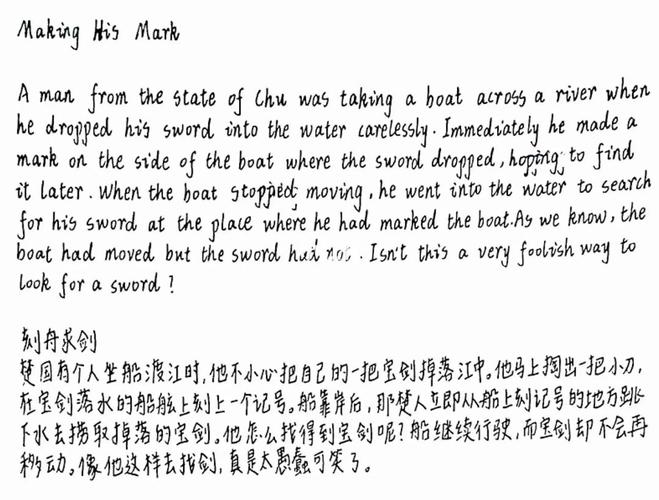 Making His Mark
A man from the state of Chu was taking a boat across a river when
he dropped his sword into the water carelessly. Immediately he made a
mark on the side of the boat where the sword dropped, hoping to find
it later. When the boat stopped moving, he went into the water to search
for his sword at the place where he had marked the boat. As we know, the
boat had moved but the sword had not. Isn't this a very foolish way to
look for a sword?
刻舟求剑
楚国有个人坐船渡江时,他不小心把自己的一把宝剑掉落江中。他马上掏出一把小刀,
在宝剑落水的船舷上刻上一个记号。船靠岸后,那楚人立即从船上刻记号的地方跳
下水去捞取掉落的宝剑。他怎么找得到宝剑呢?船继续行驶,而宝剑却不会再
移动。像他这样去找剑,真是太愚蠢可笑了。